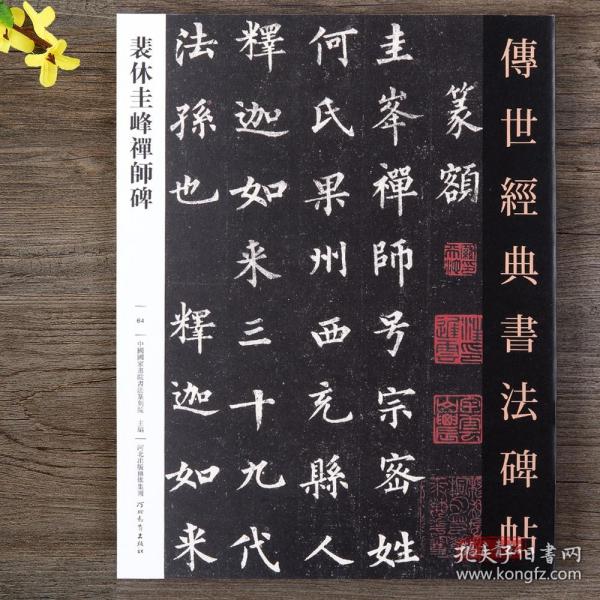 傳世經典書法碑帖
篆額
圭峯禪師号宗密姓
何氏果州西充縣人
釋迦如来三十九代
法孫也釋迦如来
裴休圭峰禪師碑
64
中國國家畫院書法篆刻院 主編
河北出版傳媒集團
河北教育出版社
孔夫子旧书网
www.kongfz.com